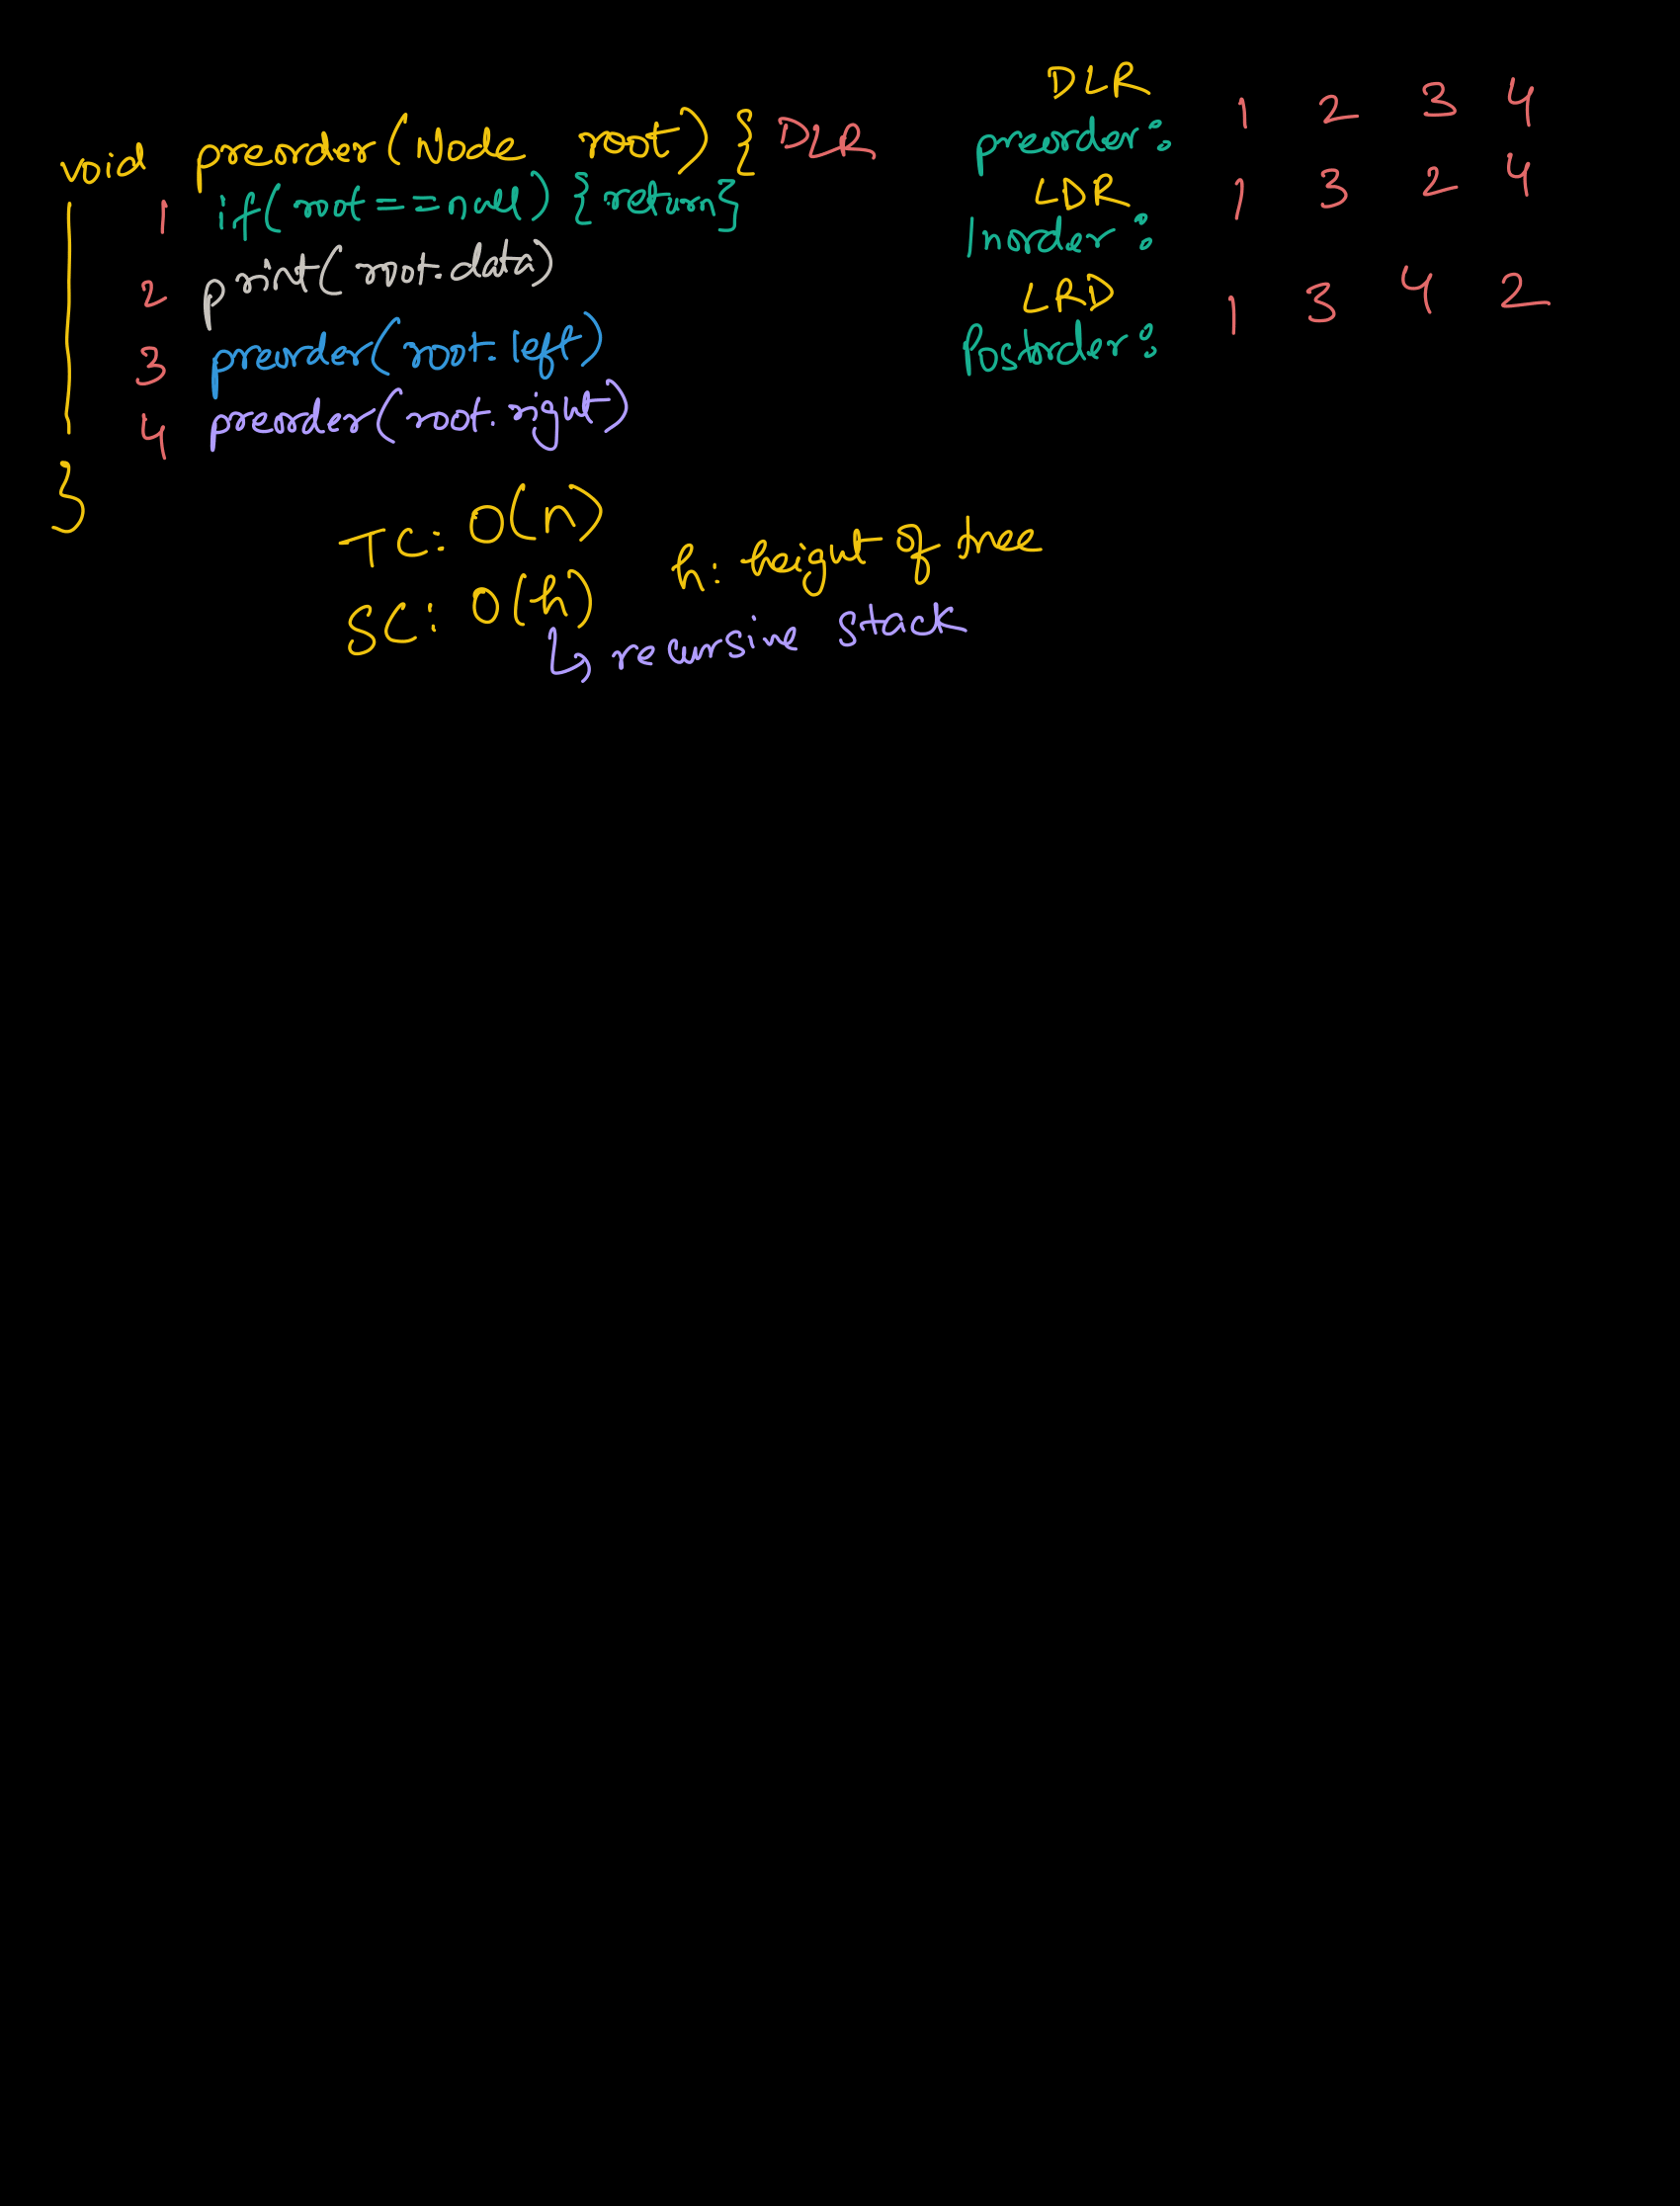 void preorder(Node root) { DLR
1 if(root==null) {return}
2 print(root.data)
3 preorder(root.left)
4 preorder(root.right)
}
TC: O(n)
SC: O(h) h: height of tree
↳ recursive stack
DLR
preorder: 1 2 3 4
LDR
Inorder: 1 3 2 4
LRD
Postorder: 1 3 4 2